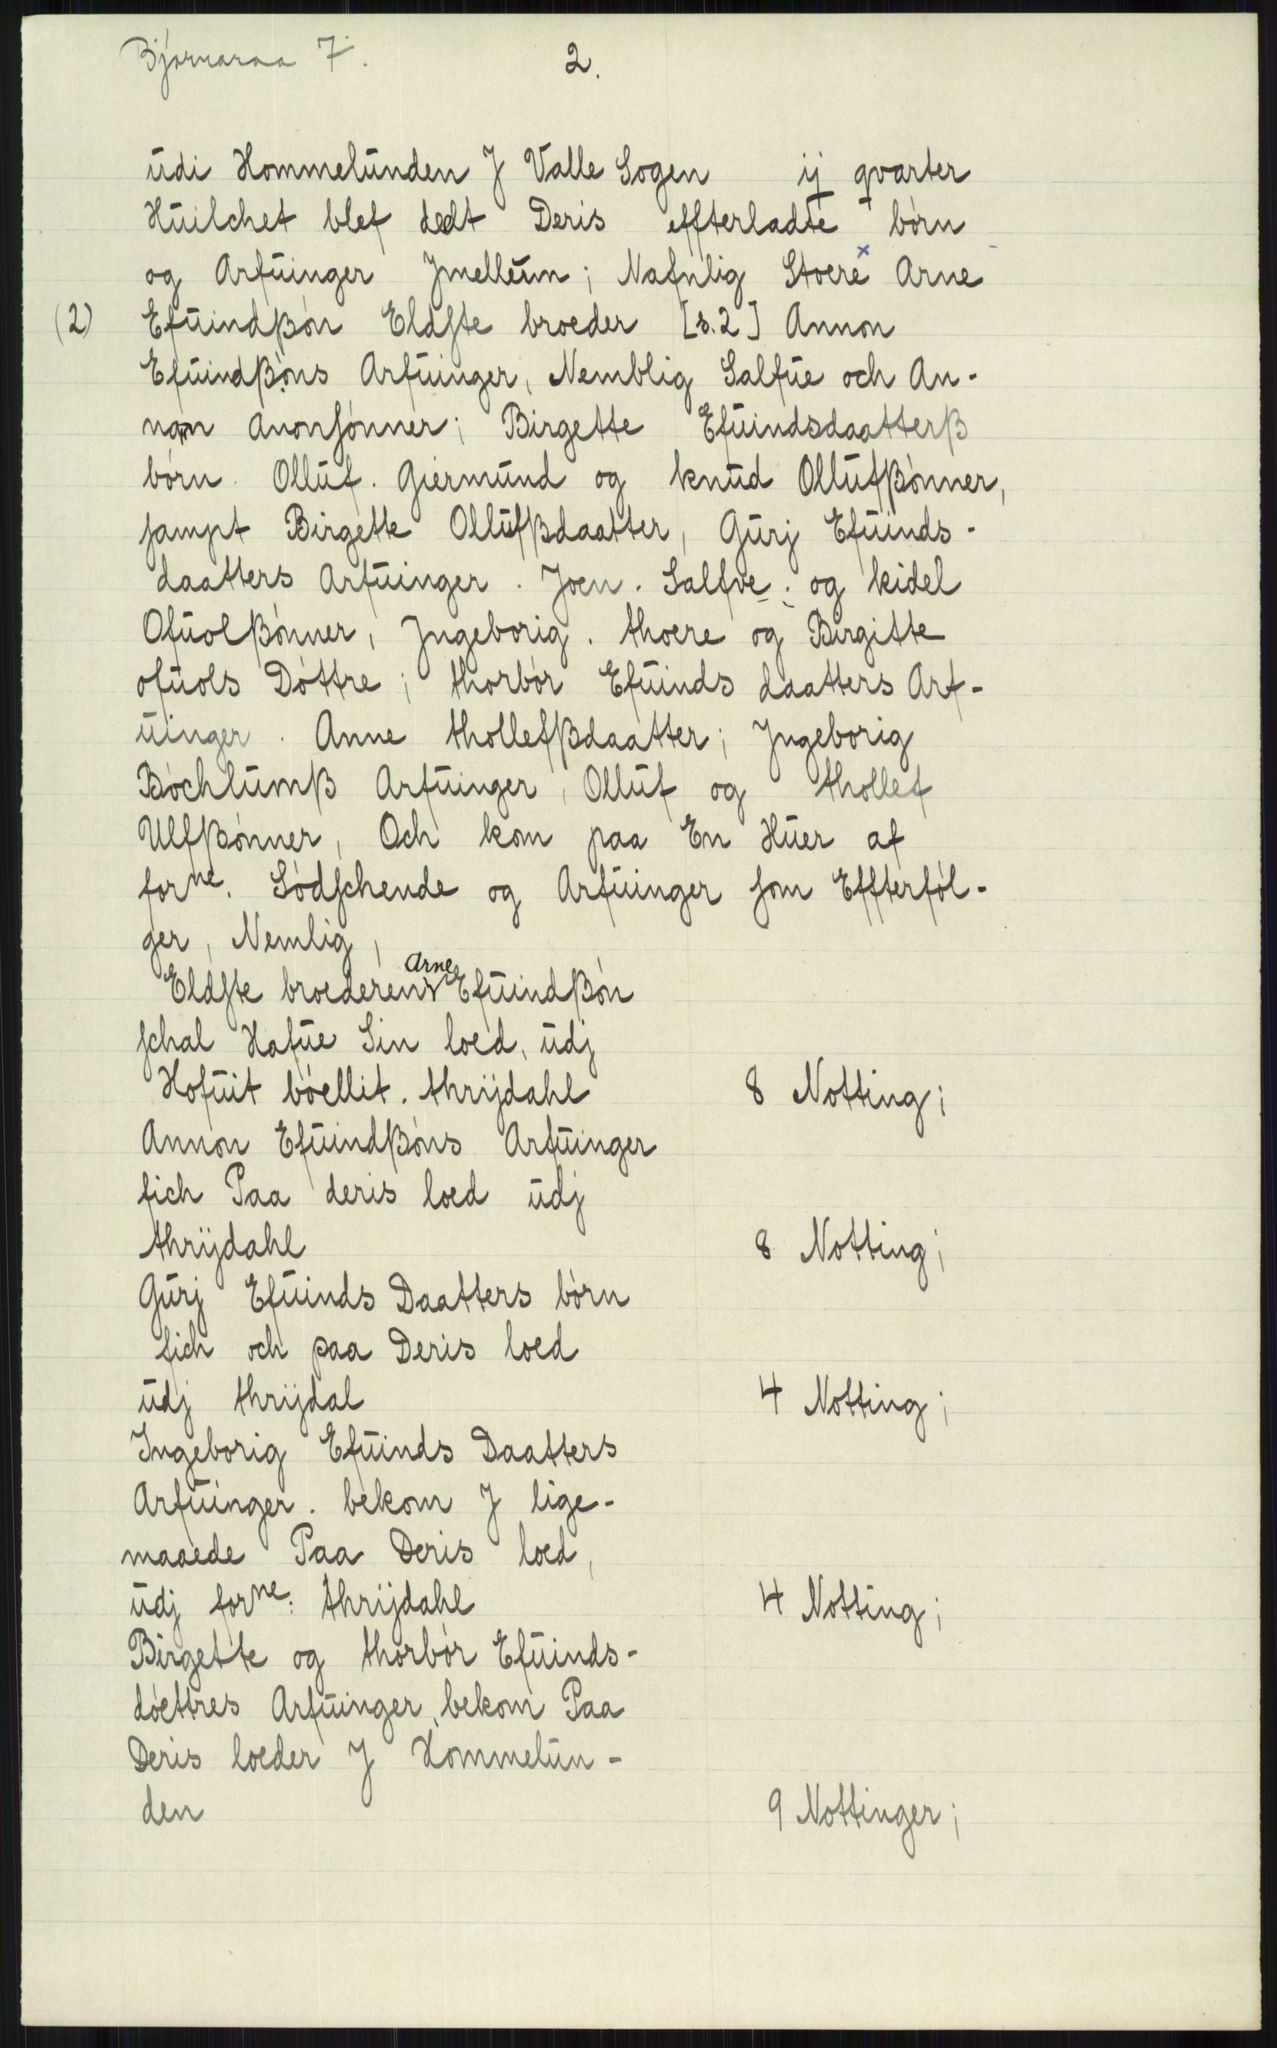 Bjørnaraa 7.
2.
udi Hommelunden J Valle Sogen ij qvarter
Huilchet blef dedt Deris effterladte børn
og Arfuinger Jmellum; Nafnlig Stoere x Arne
(2) Efuindßøn Eldste broeder [s.2] Annon
Efuindßøns Arfuinger, Nemblig Salfue och An-
non Anonsønner; Birgette Efuindsdaatterß
børn. Olluf. Giermund og knud Ollufßønner,
sampt Birgette Ollufßdaatter, Gurj Efuinds-
daatters Arfuinger. Joen. Salfve. og kidel
Ofuolßønner, Jngeborig. thoere og Birgitte
ofuols Døttre; thorbør Efuinds daatters Arf-
uinger. Anne thollefßdaatter; Jngeborig
Bøchlumß Arfuinger, Olluf og thollef
Ulfßønner, Och kom paa En Huer af
forne. Sødschende og Arfuinger som Effterføl-
ger, Nemlig,
Eldste broederen Arne Efuindßøn
schal Hafue Sin loed, udj
Hofuit bøellit. thrijdahl 8 Notting;
Annon Efuindßøns Arfuinger
fich Paa deris loed udj
thrijdahl 8 Notting;
Gurj Efuinds Daatters børn
fich och paa Deris loed
udj thrijdal 4 Notting;
Ingeborig Efuinds Daatters
Arfuinger. bekom J lige-
maaede Paa Deris loed,
udj forne: thrijdahl 4 Notting;
Birgette og thorbør Efuinds-
døettres Arfuinger, bekom Paa
Deris loeder J Hommelun-
den 9 Nottinger;